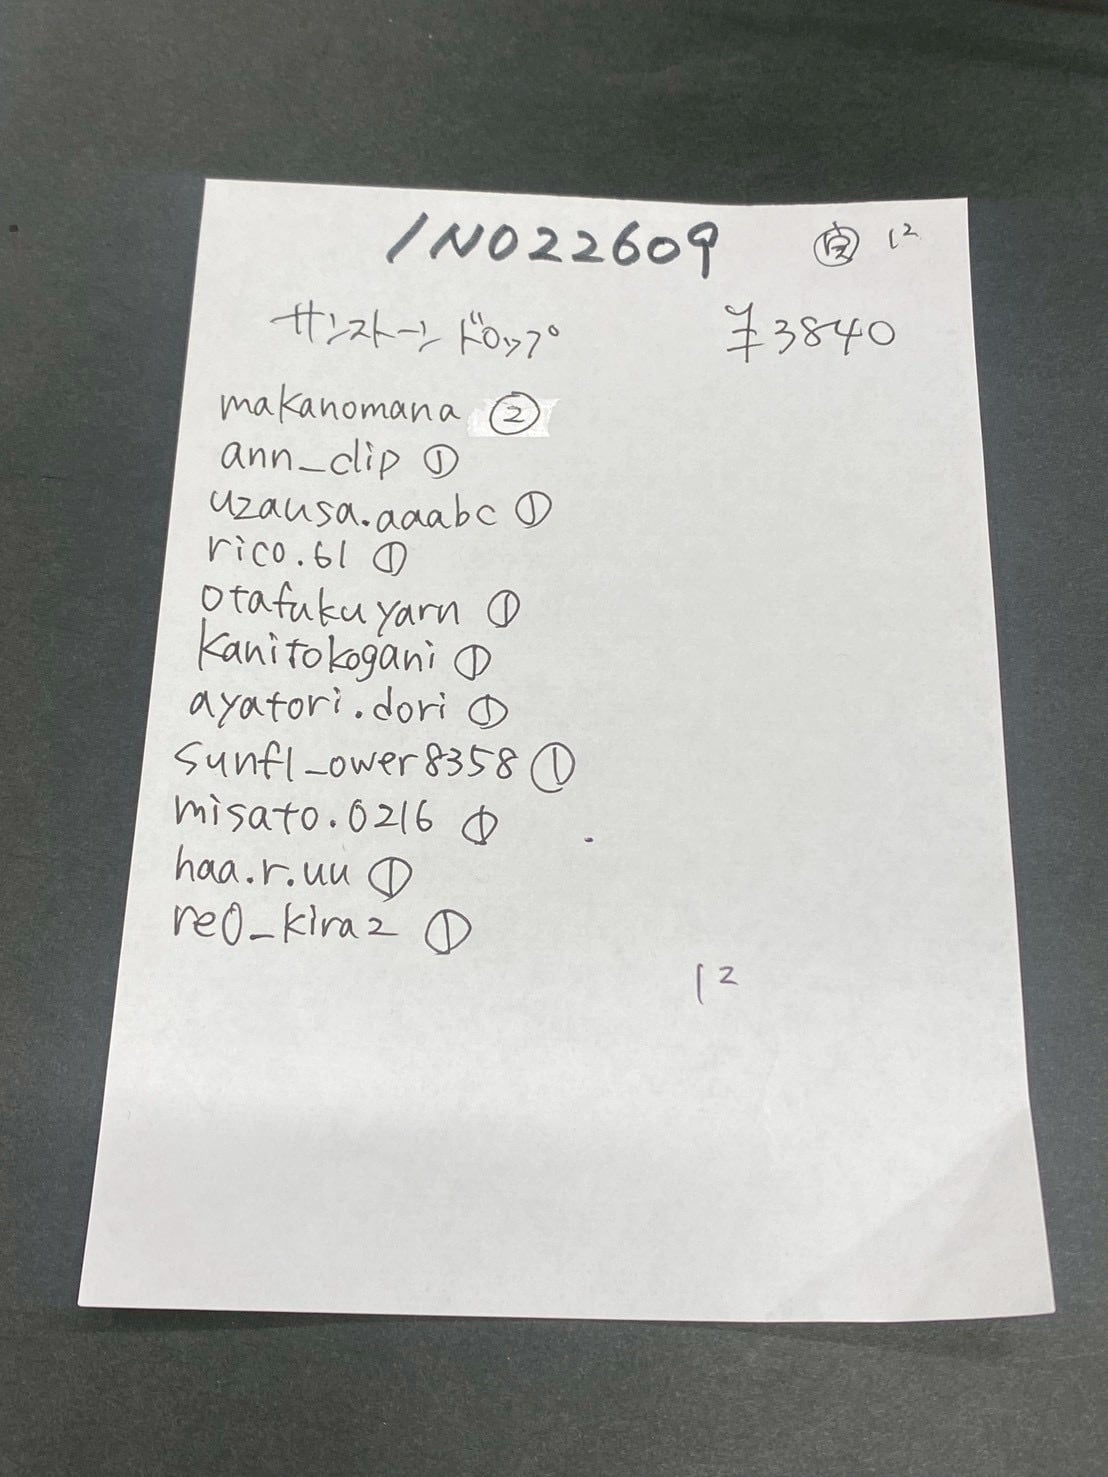 INO22609
12
サンストーンドロップ ¥3840
makanomana ②
ann_clip ①
uzausa.aaabc ①
rico.61 ①
otafukuyarn ①
kanitokogani ①
ayatori.dori ①
sunfl_ower8358 ①
misato.0216 ①
haa.r.uu ①
re0_kira2 ①
12